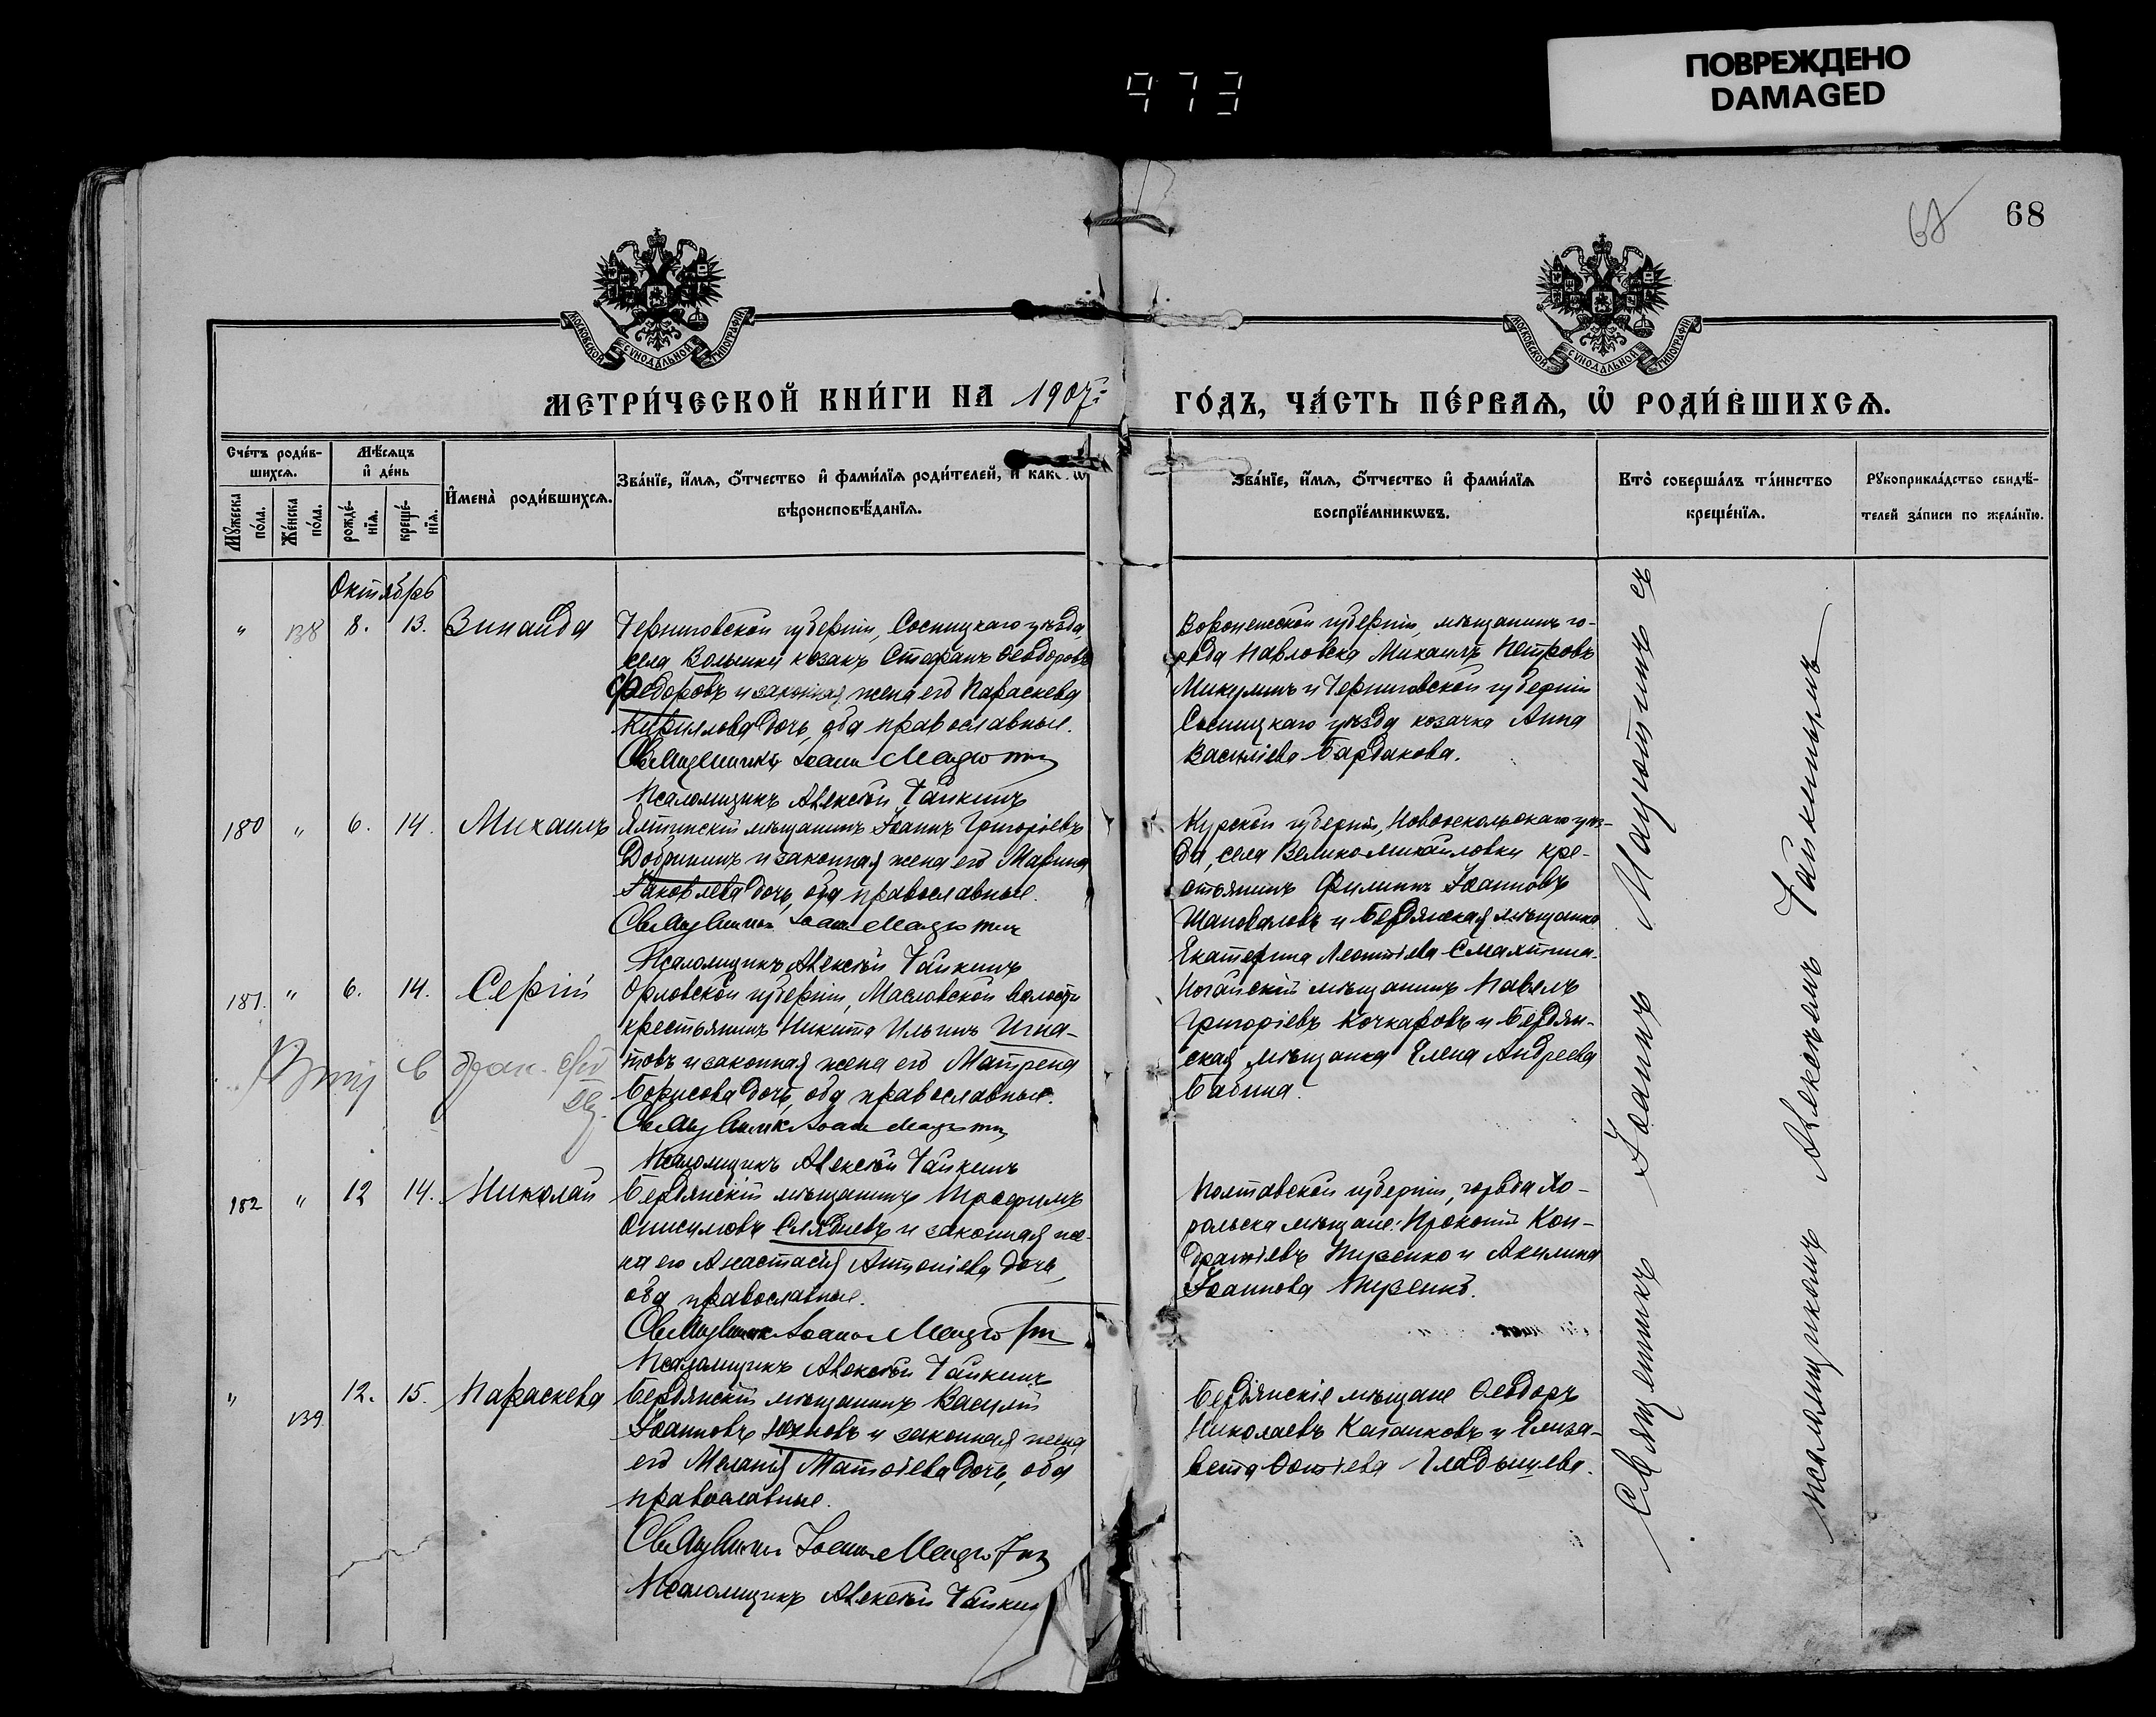 ПОВРЕЖДЕНО
DAMAGED
973
68
68
МОСКОВСКОЙ СѴНОДАЛЬНОЙ ТИПОГРАФІИ
МОСКОВСКОЙ СѴНОДАЛЬНОЙ ТИПОГРАФІИ
МЕТРИ́ЧЕСКОЙ КНИ́ГИ НА 1907
ГО́ДЪ, ЧА́СТЬ ПЕ́РВАѦ, Ѡ҆ РОДИ́ВШИХСѦ.
Сче́тъ роди́в-
шихсѧ.
Мꙋ́жеска
по́ла.
Же́нска
по́ла.
Мѣ́сѧцъ
и҆ де́нь
рожде́-
нїѧ.
креще́-
нїѧ.
И҆мена̀ роди́вшихсѧ.
Зва́нїе, и҆́мѧ, ѻ҆́тчество и҆ фами́лїѧ роди́телей, и҆ како́гѡ
вѣроисповѣ́данїѧ.
Зва́нїе, и҆́мѧ, ѻ҆́тчество и҆ фами́лїѧ
воспрїе́мникѡвъ.
Кто̀ соверша́лъ та́инство
креще́нїѧ.
Рꙋкоприкла́дство свидѣ́-
телей за́писи по жела́нїю.
Октябрь
" 138 8. 13. Зинаида
Черниговской губерніи, Сосницкаго уѣзда,
села Волынки козакъ Стефанъ Ѳеодоровъ
Федоровъ и законная жена его Параскева
Кириллова дочь, оба православные.
Священникъ Іоаннъ Мацютинъ
Псаломщикъ Алексѣй Чайкинъ
Воронежской губерніи, мѣщанинъ го-
рода Павловска Михаилъ Петровъ
Микулинъ и Черниговской губерніи
Сосницкаго уѣзда козачка Анна
Василіева Бардакова.
180 " 6. 14. Михаилъ
Ялтинскій мѣщанинъ Іоаннъ Григоріевъ
Добрининъ и законная жена его Марина
Іаковлева дочь, оба православные.
Священникъ Іоаннъ Мацютинъ
Псаломщикъ Алексѣй Чайкинъ
Курской губерніи, Новооскольскаго уѣз-
да, села Великомихайловки кре-
стьянинъ Филиппъ Іоанновъ
Шаповаловъ и Бердянская мѣщанка
Екатерина Леонтіева Смахтина.
181. " 6. 14. Сергій
Орловской губерніи, Масловской волости
крестьянинъ Никита Ильинъ Игна-
товъ и законная жена его Матрена
Борисова дочь, оба православные.
Священникъ Іоаннъ Мацютинъ
Псаломщикъ Алексѣй Чайкинъ
Ногайскій мѣщанинъ Павелъ
Григоріевъ Кочкаровъ и Бердян-
ская мѣщанка Елена Андреева
Бабина.
182 " 12 14. Николай
Бердянскій мѣщанинъ Трофимъ
Онисимовъ Слядневъ и законная же-
на его Анастасія Антоніева дочь,
оба православные.
Священникъ Іоаннъ Мацютинъ
Псаломщикъ Алексѣй Чайкинъ
Полтавской губерніи, города Хо-
рольска мѣщане: Прокопій Кон-
дратіевъ Пузенко и Акилина
Іоаннова Пузенко.
" 139 12. 15. Параскева
Бердянскій мѣщанинъ Василій
Іоанновъ Юхновъ и законная жена
его Меланія Матѳіева дочь, оба
православные.
Священникъ Іоаннъ Мацютинъ
Псаломщикъ Алексѣй Чайкин
Бердянскіе мѣщане Ѳеодоръ
Николаевъ Катанковъ и Елиза-
вета Ѳотіева Гладышева.
Священникъ Іоаннъ Мацютинъ съ
псаломщикомъ Алексѣемъ Чайкинымъ